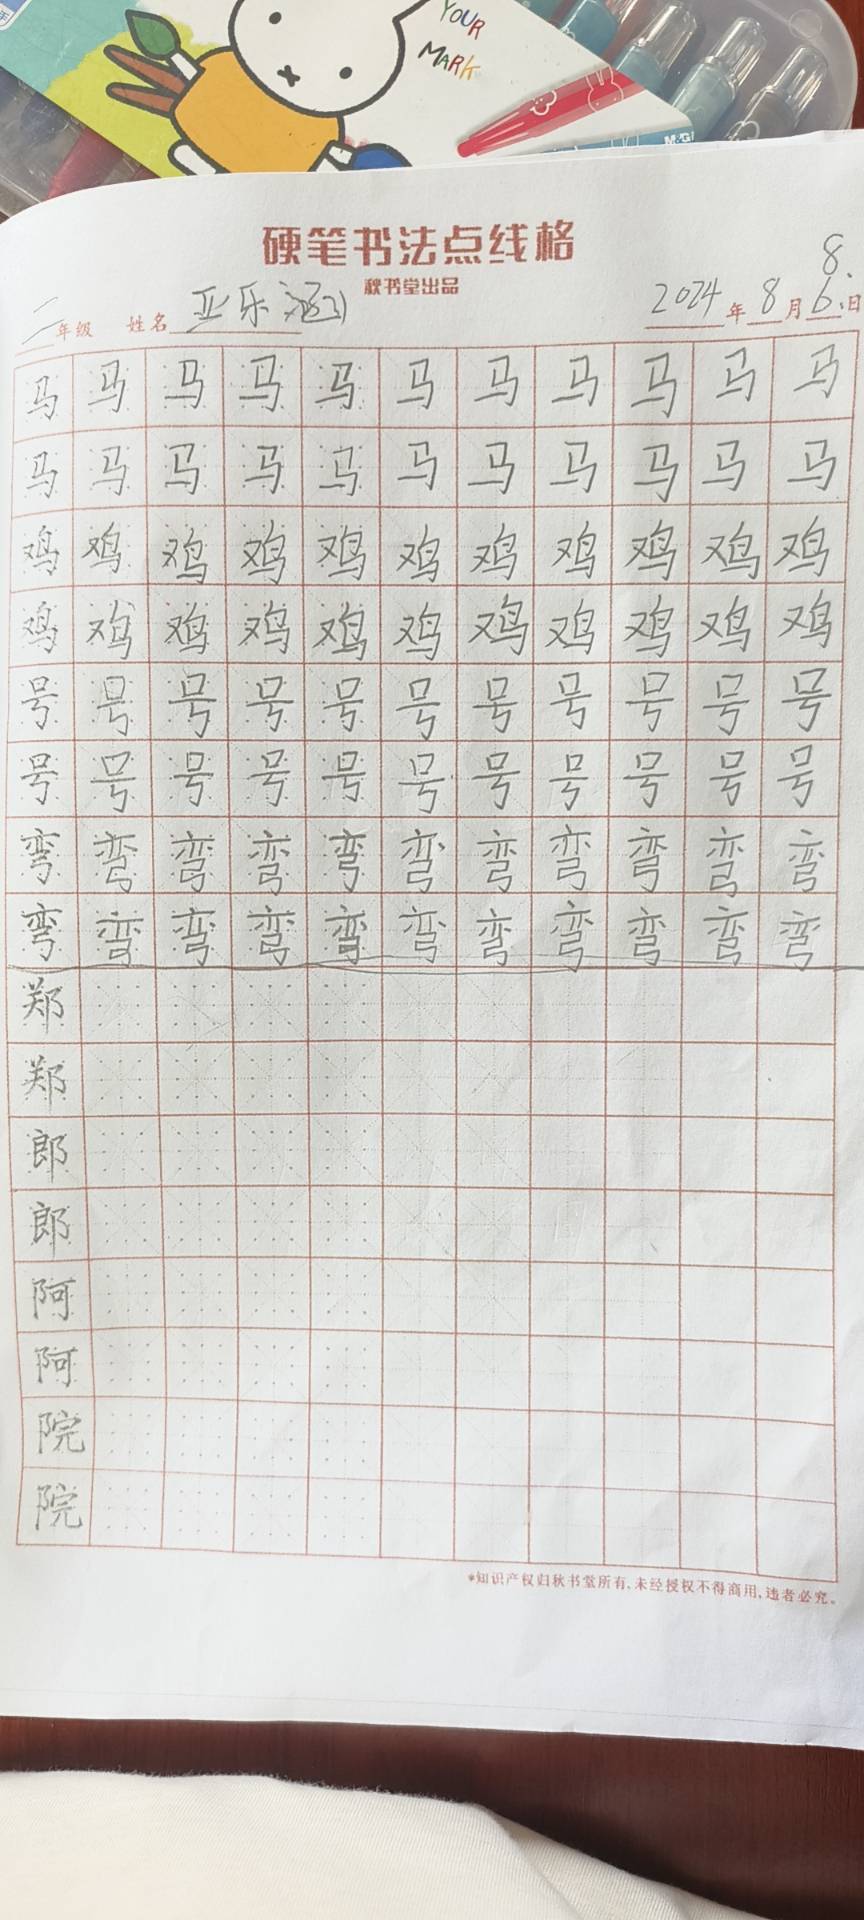 YOUR
MARK
M&G
硬笔书法点线格
秋书堂出品
8.
二年级 姓名 亚乐涵 2024年8月6日
马马马马马马马马马马马
马马马马马马马马马马马
鸡鸡鸡鸡鸡鸡鸡鸡鸡鸡鸡
鸡鸡鸡鸡鸡鸡鸡鸡鸡鸡鸡
号号号号号号号号号号号
号号号号号号号号号号号
弯弯弯弯弯弯弯弯弯弯弯
弯弯弯弯弯弯弯弯弯弯弯
郑
郑
郎
郎
阿
阿
院
院
*知识产权归秋书堂所有,未经授权不得商用,违者必究。